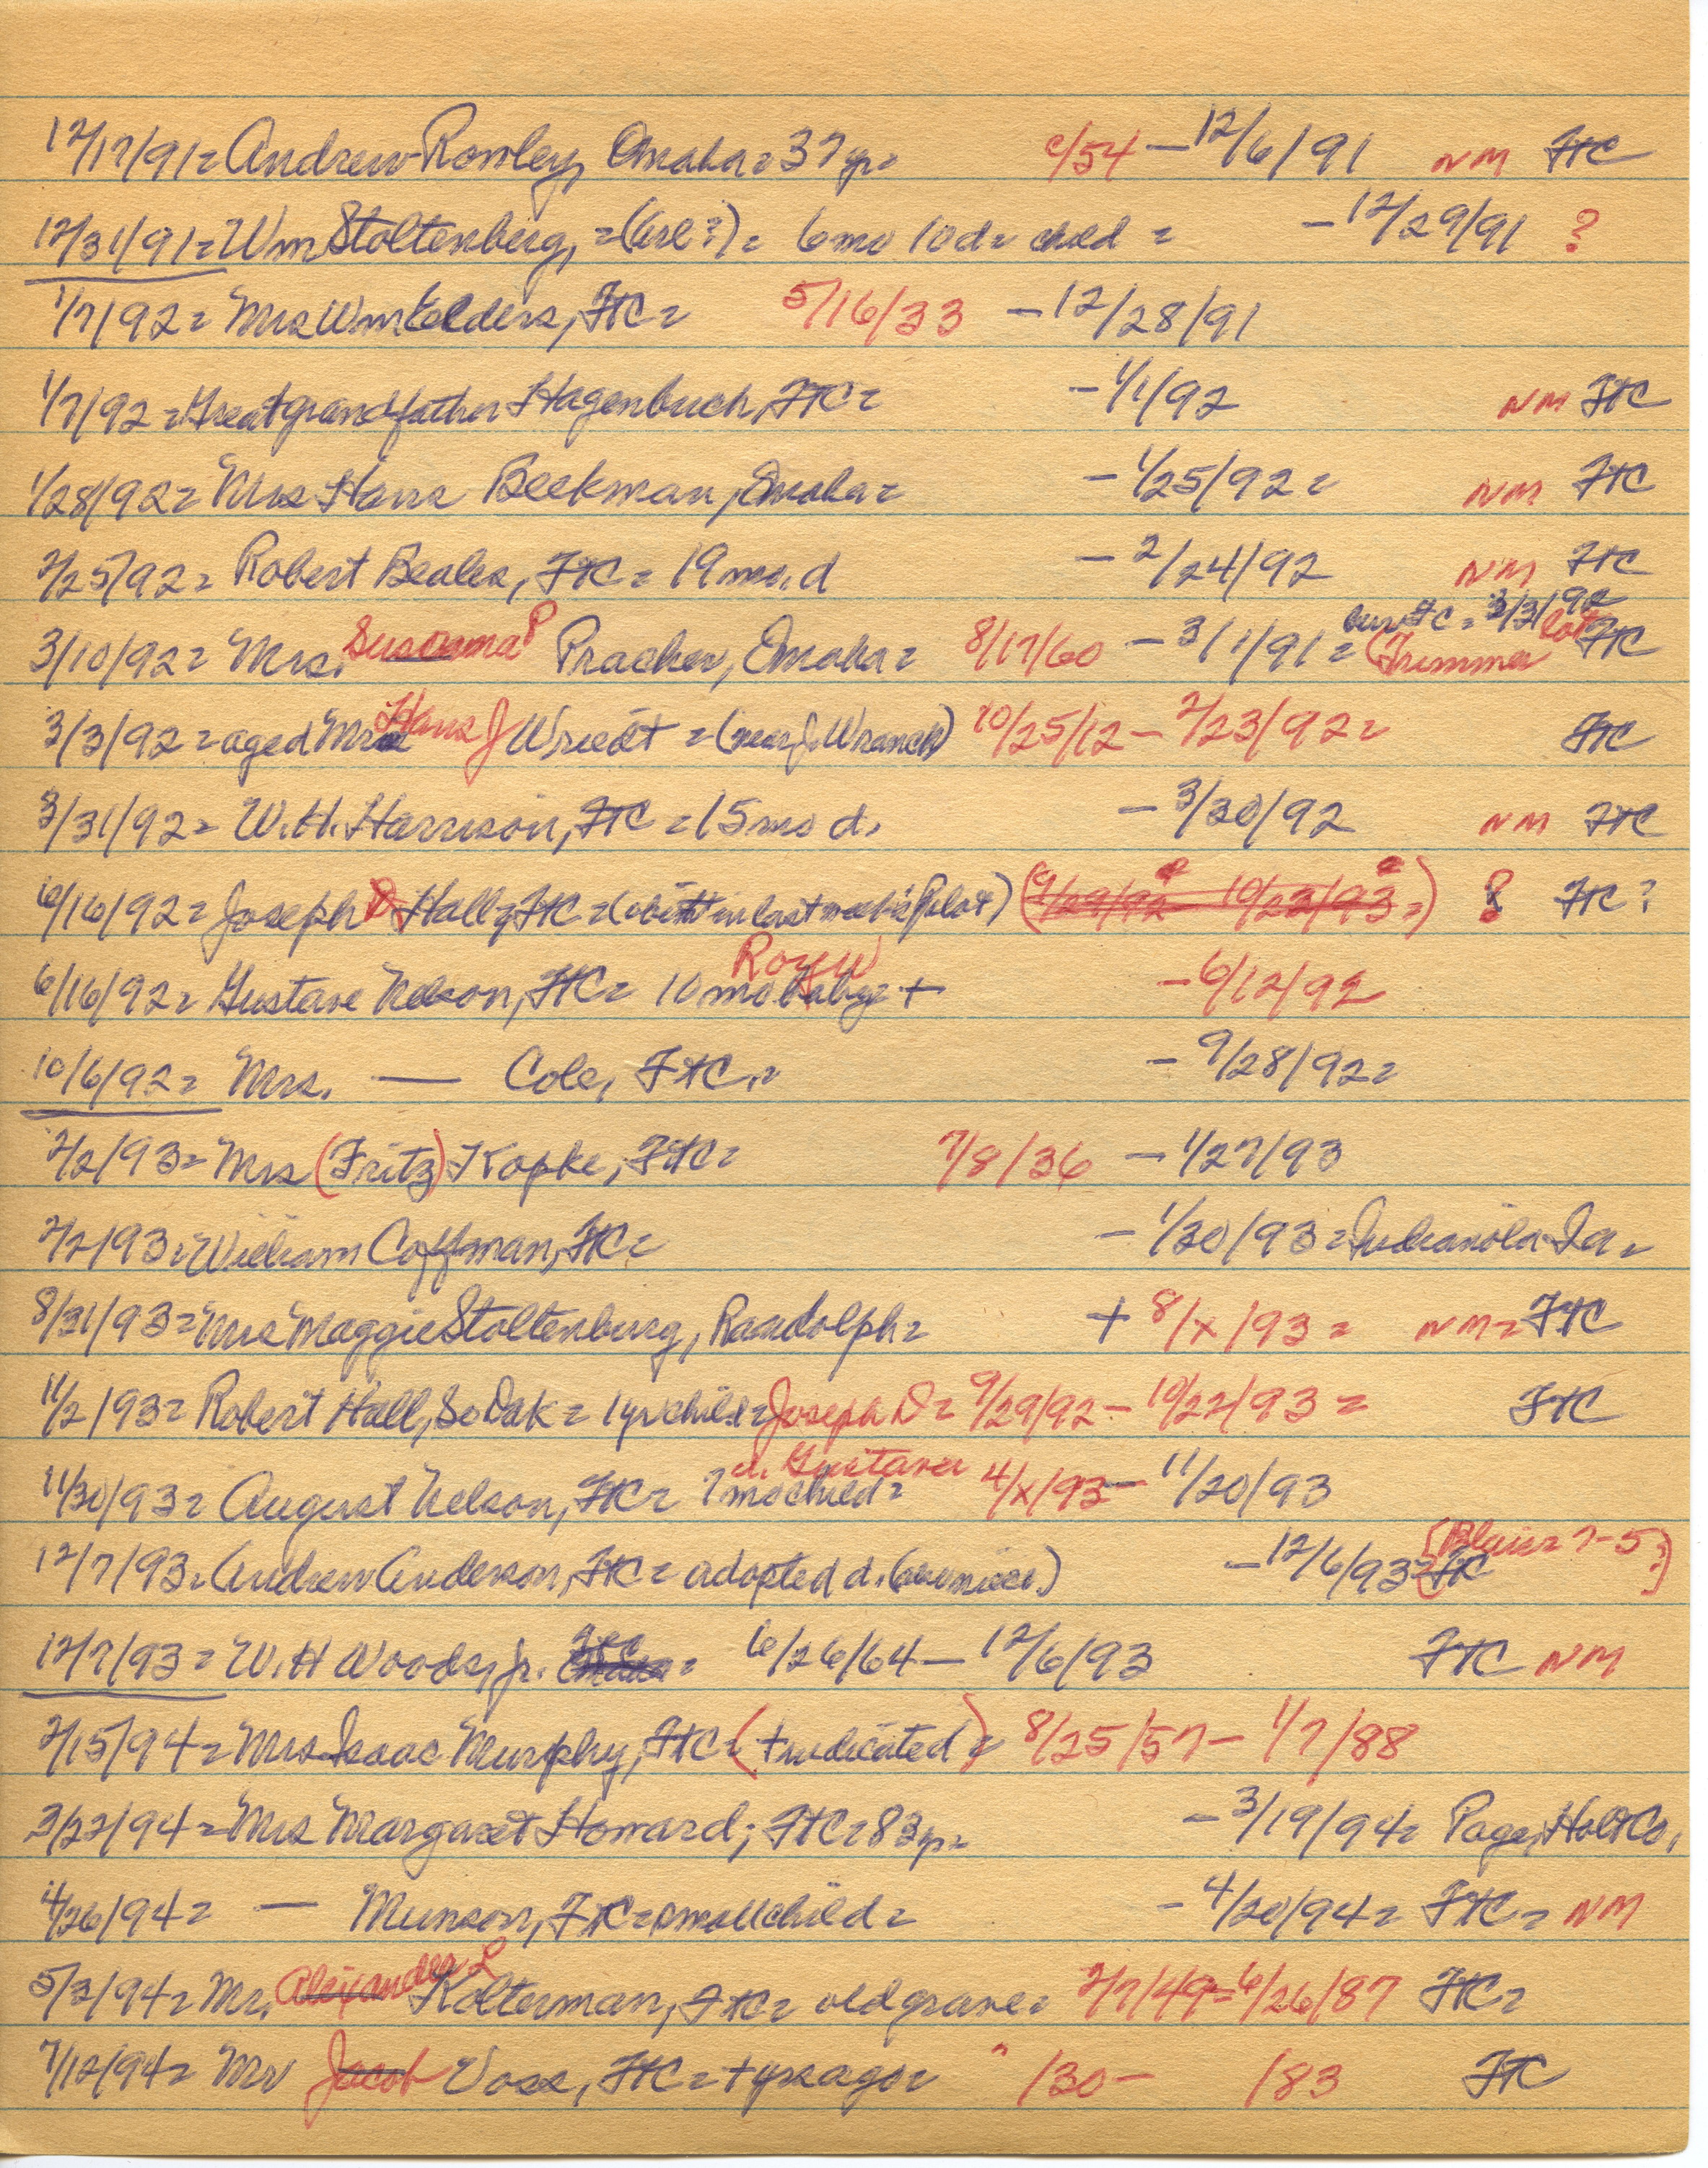 12/17/91= Andrew Rowley, Omaha = 37 yr= c/54 — 12/6/91 NM FtC
12/31/91= Wm Stoltenberg, = ( ?) = 6 mo 10 d = child = — 12/29/91 ?
1/7/92 = Mrs Wm Eelders, FtC = 5/16/33 — 12/28/91
1/7/92 = Great grandfather Hagenbuch, FtC = — 1/1/92 NM FtC
1/28/92 = Mrs Hans Beekman, Omaha = — 1/25/92 = NM FtC
2/25/92 = Robert Beales, FtC = 19 mo. d — 2/24/92 NM FtC
3/10/92 = Mrs. Susanna P Pracher, Omaha = 8/17/60 — 3/1/91 = bur FtC = 3/3/92 (Frummer lot FtC
3/3/92 = aged Mrs Hans J Wriedt = (near J. W ranch) 10/25/12 — 2/23/92 = FtC
3/31/92 = W. H. Harrison, FtC = 15 mo d. — 3/30/92 NM FtC
6/16/92 = Joseph D Hall, FtC = (obit in last week's Pilot) (9/29/92 — 10/22/93 =) 8 FtC ?
6/16/92 = Gustave Nelson, FtC = 10 mo baby + Roy W — 6/12/92
10/6/92 = Mrs. — Cole, FtC. = — 9/28/92 =
2/2/93 = Mrs (Fritz) Kopke, FtC = 7/8/36 — 1/27/93
2/2/93 = William Coffman, FtC = — 1/30/93 = Indianola Ia =
8/31/93 = Mrs Maggie Stoltenburg, Randolph = + 8/x/93 = NM = FtC
11/2/93 = Robert Hall, So Dak = 1 yr child = Joseph D = 9/29/92 — 10/22/93 = FtC
11/30/93 = August Nelson, FtC = 7 mo child = d. Gustaver 4/x/93 — 11/20/93
12/7/93 = Andrew Anderson, FtC = adopted d. ( niece.) — 12/6/93 = FtC [Blair = 7-5 ?]
12/7/93 = W. H Woods, Jr. FtC = 6/26/64 — 12/6/93 FtC NM
2/15/94 = Mrs Isaac Murphy, FtC = (+ indicated) = 8/25/57 — 1/7/88
3/22/94 = Mrs Margaret Howard; FtC = 83 yr = — 3/19/94 = Page, Holt Co,
4/26/94 = — Munson, FtC = small child = — 4/20/94 = FtC = NM
5/3/94 = Mr. Alexander L Kolterman, FtC = old grave = 2/7/49 = 6/26/87 FtC =
7/12/94 = Mr Jacob Voss, FtC = + yrs ago = " /30 — /83 FtC